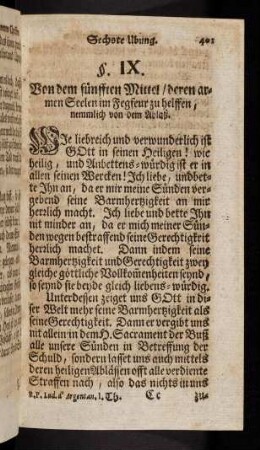 Sechste Ubung. 401
§. IX.
Von dem fünfften Mittel / deren ar-
men Seelen im Fegfeur zu helffen,
nemmlich von dem Ablaß.
WIe liebreich und verwunderlich ist
GOtt in seinen Heiligen! wie
heilig, und Anbettens-würdig ist er in
allen seinen Wercken! Ich liebe, und bet-
te Ihn an, da er mir meine Sünden ver-
gebend seine Barmhertzigkeit an mir
herrlich macht. Ich liebe und bette Ihn
nit minder an, da er mich meiner Sün-
den wegen bestraffend seine Gerechtigkeit
herrlich machet. Dann indem seine
Barmhertzigkeit und Gerechtigkeit zwey
gleiche göttliche Vollkom̃enheiten seynd,
so seynd sie beyde gleich liebens-würdig.
Unterdessen zeiget uns GOtt in di-
ser Welt mehr seine Barmhertzigkeit als
seine Gerechtigkeit. Dann er vergibt uns
nit allein in dem H. Sacrament der Buß
alle unsere Sünden in Betreffung der
Schuld, sondern lasset uns auch mittels
deren heiligen Abläsen offt alle verdiente
Straffen nach, also das nichts in uns
R.P. Lud. d' Argentan, I. Th. Cc zu-